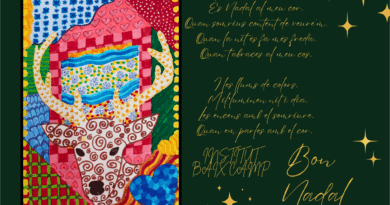 És Nadal al meu cor.
Quan somrius content de veure'm.
Quan la nit es fa més freda.
Quan t'abraces al meu cos.
les llums de colors.
M'il·luminen nit i dia.
Les encens amb el somriure.
Quan em parles amb el cor.
INSTITUT
BAIX CAMP
Bon
Nadal